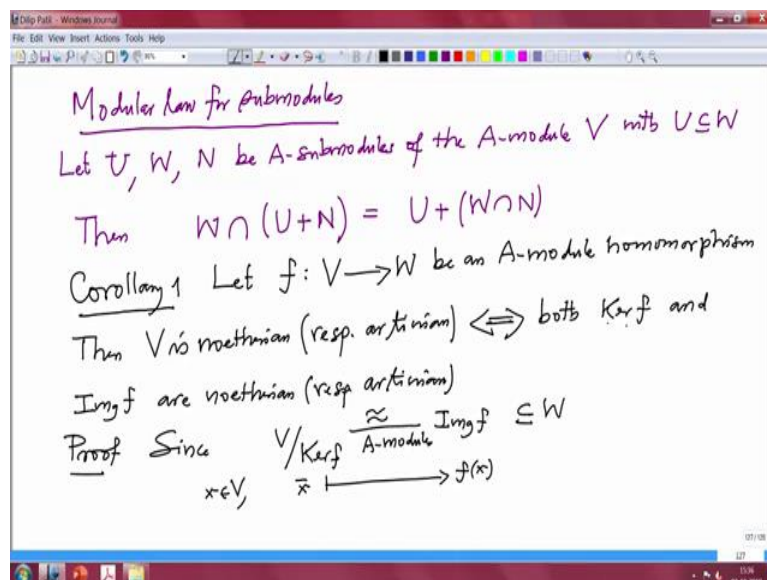 Dilip Patil - Windows Journal
File Edit View Insert Actions Tools Help
Modular law for submodules
Let U, W, N be A-submodules of the A-module V with U ⊆ W
Then W ∩ (U+N) = U + (W ∩ N)
Corollary 1 Let f : V → W be an A-module homomorphism
Then V is noetherian (resp. artinian) ⇔ both Ker f and
Img f are noetherian (resp artinian)
Proof Since V/Ker f ≈ Img f ⊆ W
A-module
x ∈ V, x̄ ↦ f(x)
127
15:36